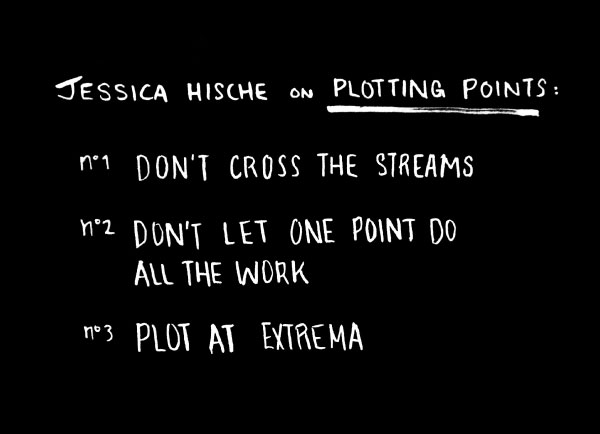 JESSICA HISCHE ON PLOTTING POINTS:
nº1 DON'T CROSS THE STREAMS
nº2 DON'T LET ONE POINT DO
ALL THE WORK
nº3 PLOT AT EXTREMA